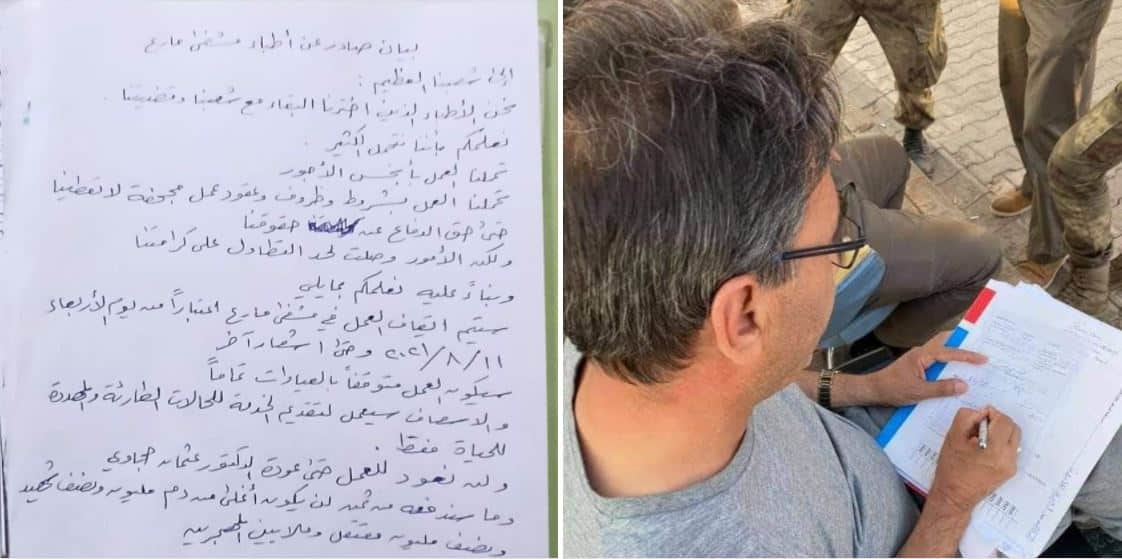 بيان صادر عن أطباء مشفى مارع
إلى شعبنا العظيم :
نحن الأطباء الذين اخترنا البقاء مع شعبنا وقضيتنا .
نعلمكم بأننا نتحمل الكثير .
تحملنا العمل بأبخس الأجور
تحملنا العمل بشروط وظروف وعقود عمل مجحفة لا تعطينا
حتى حق الدفاع عن حقوقنا
ولكن الأمور وصلت لحد التطاول على كرامتنا
وبناءً عليه نعلمكم بمايلي
سيتم ايقاف العمل في مشفى مارع اعتباراً من يوم الأربعاء
٢٠٢١/٨/١١ وحتى اشعار آخر
سيكون العمل متوقفاً بالعيادات تماماً
والاسعاف سيعمل لتقديم الخدمة للحالات الطارئة والمهددة
للحياة فقط .
ولن نعود للعمل حتى عودة الدكتور عثمان حجاوي
وما سندفعه من ثمن لن يكون أغلى من دم مليون ونصف شهيد
ونصف مليون معتقل وملايين المهجرين